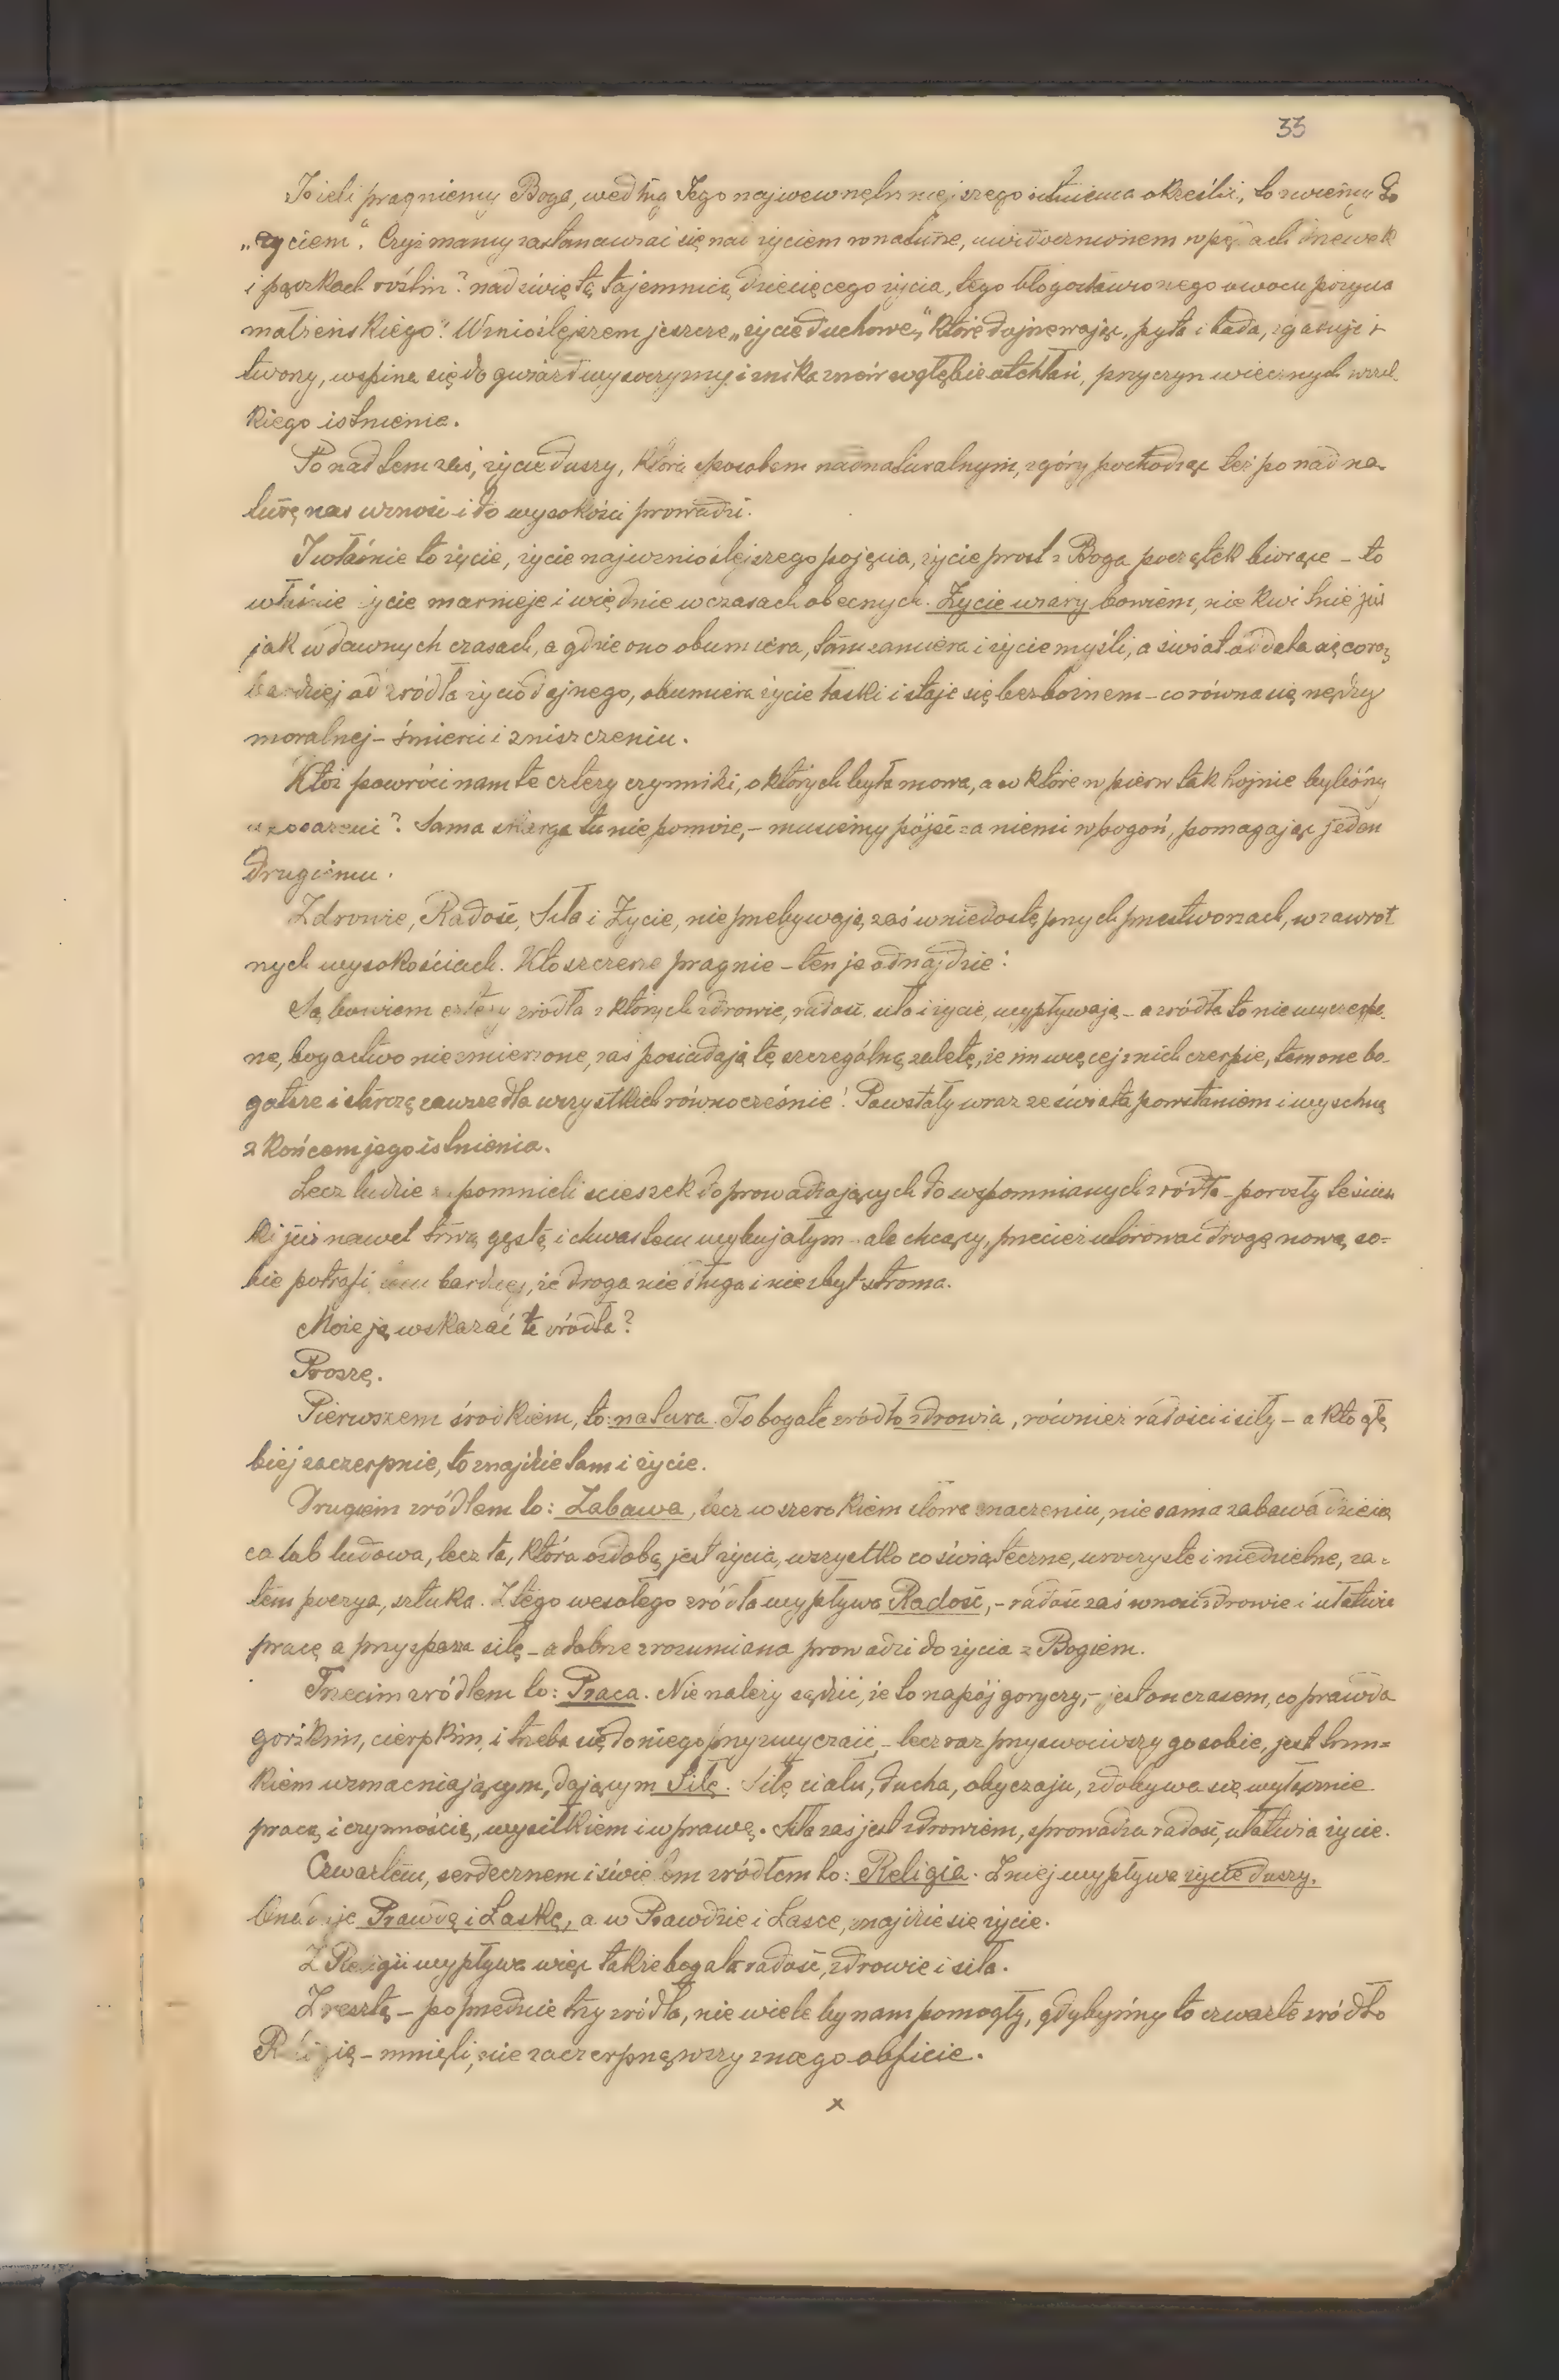 33
Jeżeli pragniemy Boga, według Jego najwewnętrzniejszego istnienia określić, to zwiemy Go
„życiem". Czyż mamy zastanawiać się nad życiem w naturze, uwidocznionem w pędach drzewek
i pączkach roślin? nad świętą tajemnicą dziecięcego życia, tego błogosławionego owocu pożycia
małżeńskiego? Wznioślejszem jeszcze „życie duchowe", które dojrzewając, pyta i bada, i
tworzy, wspina się do gwiazd wysoczyzny i znika znów w głębie otchłani, przyczyn wiecznych wszel-
kiego istnienia.
Ponad tem zaś, życie duszy, która sposobem nadnaturalnym, z góry pochodząc też ponad na-
turę nas wznosi i do wysokości prowadzi.
I właśnie to życie, życie najwznioślejszego pojęcia, życie prost z Boga początek biorące – to
właśnie życie marnieje i więdnie w czasach obecnych. Życie wiary bowiem, nie kwitnie już
jak w dawnych czasach, a gdzie ono obumiera, tam zamiera i życie myśli, a świat oddala się coraz
bardziej od źródła życiodajnego, obumiera życie łaski i staje się bezbożnem – co równa się nędzy
moralnej – śmierci i zniszczeniu.
Któż powróci nam te cztery czynniki, o których była mowa, a w które wpierw tak hojnie byliśmy
wyposażeni? Sama skarga tu nie pomoże, – musimy pójść za niemi w pogoń, pomagając jeden
drugiemu.
Zdrowie, Radość, Siła i Życie, nie przebywają zaś w niedostępnych przestworzach, w zawrot
nych wysokościach. Kto szczerze pragnie – ten je odnajdzie!
Są bowiem cztery źródła z których zdrowie, radość, siła i życie, wypływają – a źródła to niewyczerpa-
ne, bogactwo niezmierzone, zaś posiadają tę szczególną zaletę, że im więcej z nich czerpie, tem one bo-
gatsze i starczą zawsze dla wszystkich równocześnie! Powstały wraz ze świata powstaniem i wyschną
z końcem jego istnienia.
Lecz ludzie zapomnieli ścieszek doprowadzających do wspomnianych źródła – porosły te ścież
ki już nawet trwą gęstą i chwastem wybujałym – ale chcący, przecież utorować drogę nową so-
bie potrafi, tem bardziej, że droga nie długa i nie zbyt stroma.
Może ją wskazać te źródła?
Proszę.
Pierwszem środkiem, to: natura. To bogate źródło zdrowia, również radości i siły – a kto głę
biej zaczerpnie, to znajdzie tam i życie.
Drugiem źródłem to: Zabawa, lecz w szerokiem słowa znaczeniu, nie sama zabawa dziecię
ca lub ludowa, lecz ta, która ozdobą jest życia, wszystko co świąteczne, uroczyste i niedzielne, za-
tem poezya, sztuka. Z tego wesołego źródła wypływa Radość, – radość zaś wnosi zdrowie i ułatwia
pracę a przyspaża siłę – a dobrze zrozumiana prowadzi do życia z Bogiem.
Trzecim źródłem to: Praca. Nie należy sądzić, że to napój goryczy, – jest on czasem, co prawda
gorzkim, cierpkim, i trzeba się do niego przyzwyczaić, – lecz raz przyswoiwszy go sobie, jest trun=
kiem wzmacniającym, dającym Siłę. Siłę ciału, ducha, obyczaju, zdobywa się wyłącznie
pracą i czynnością, wysiłkiem i wprawą. Siła zaś jest zdrowiem, sprowadza radość, ułatwia życie.
Czwartem, serdecznem i świętem źródłem to: Religia. Z niej wypływa życie duszy.
Ona daje Prawdę i Łaskę, a w Prawdzie i Łasce, znajdzie się życie.
Z Religii wypływa więc także bogata radość, zdrowie i siła.
Zresztą – poprzednie trzy źródła, nie wiele by nam pomogły, gdybyśmy to czwarte źródło
Religię – minęli, nie zaczerpnąwszy z niego obficie.
x